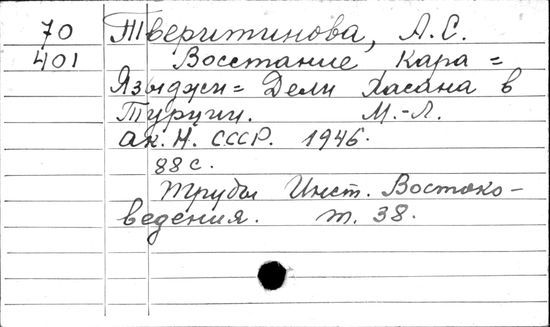 70 Тверитинова, А.С.
401 Восстание Кара =
Языджи = Дели Хасана в
Турции. М.-Л.
ак. Н. СССР. 1946.
88 с.
Труды Инст. Востоко-
ведения. т. 38.